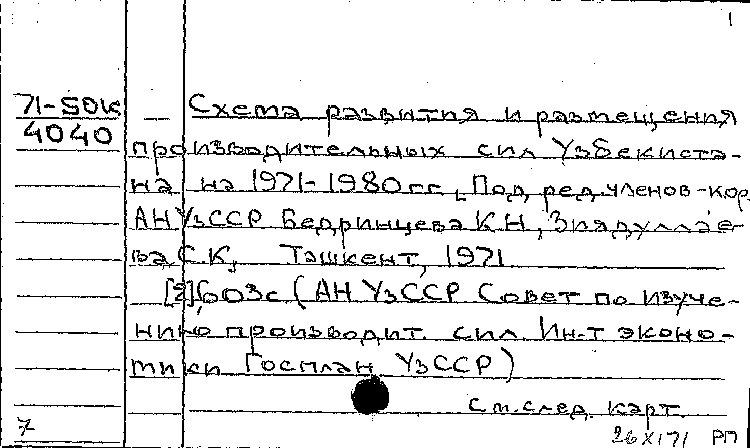 1
71-50к
4040
Схема развития и размещения
производительных сил Узбекиста-
на на 1971-1980 гг. Под ред. членов-кор.
АН УзССР Бедринцева К.Н, Зиядуллае-
ва С.К, Ташкент, 1971
[2], 603с (АН УзССР Совет по изуче-
нию производит. сил. Ин-т эконо-
мики Госплан УзССР)
См. след. карт.
7
26 XI 71 РП